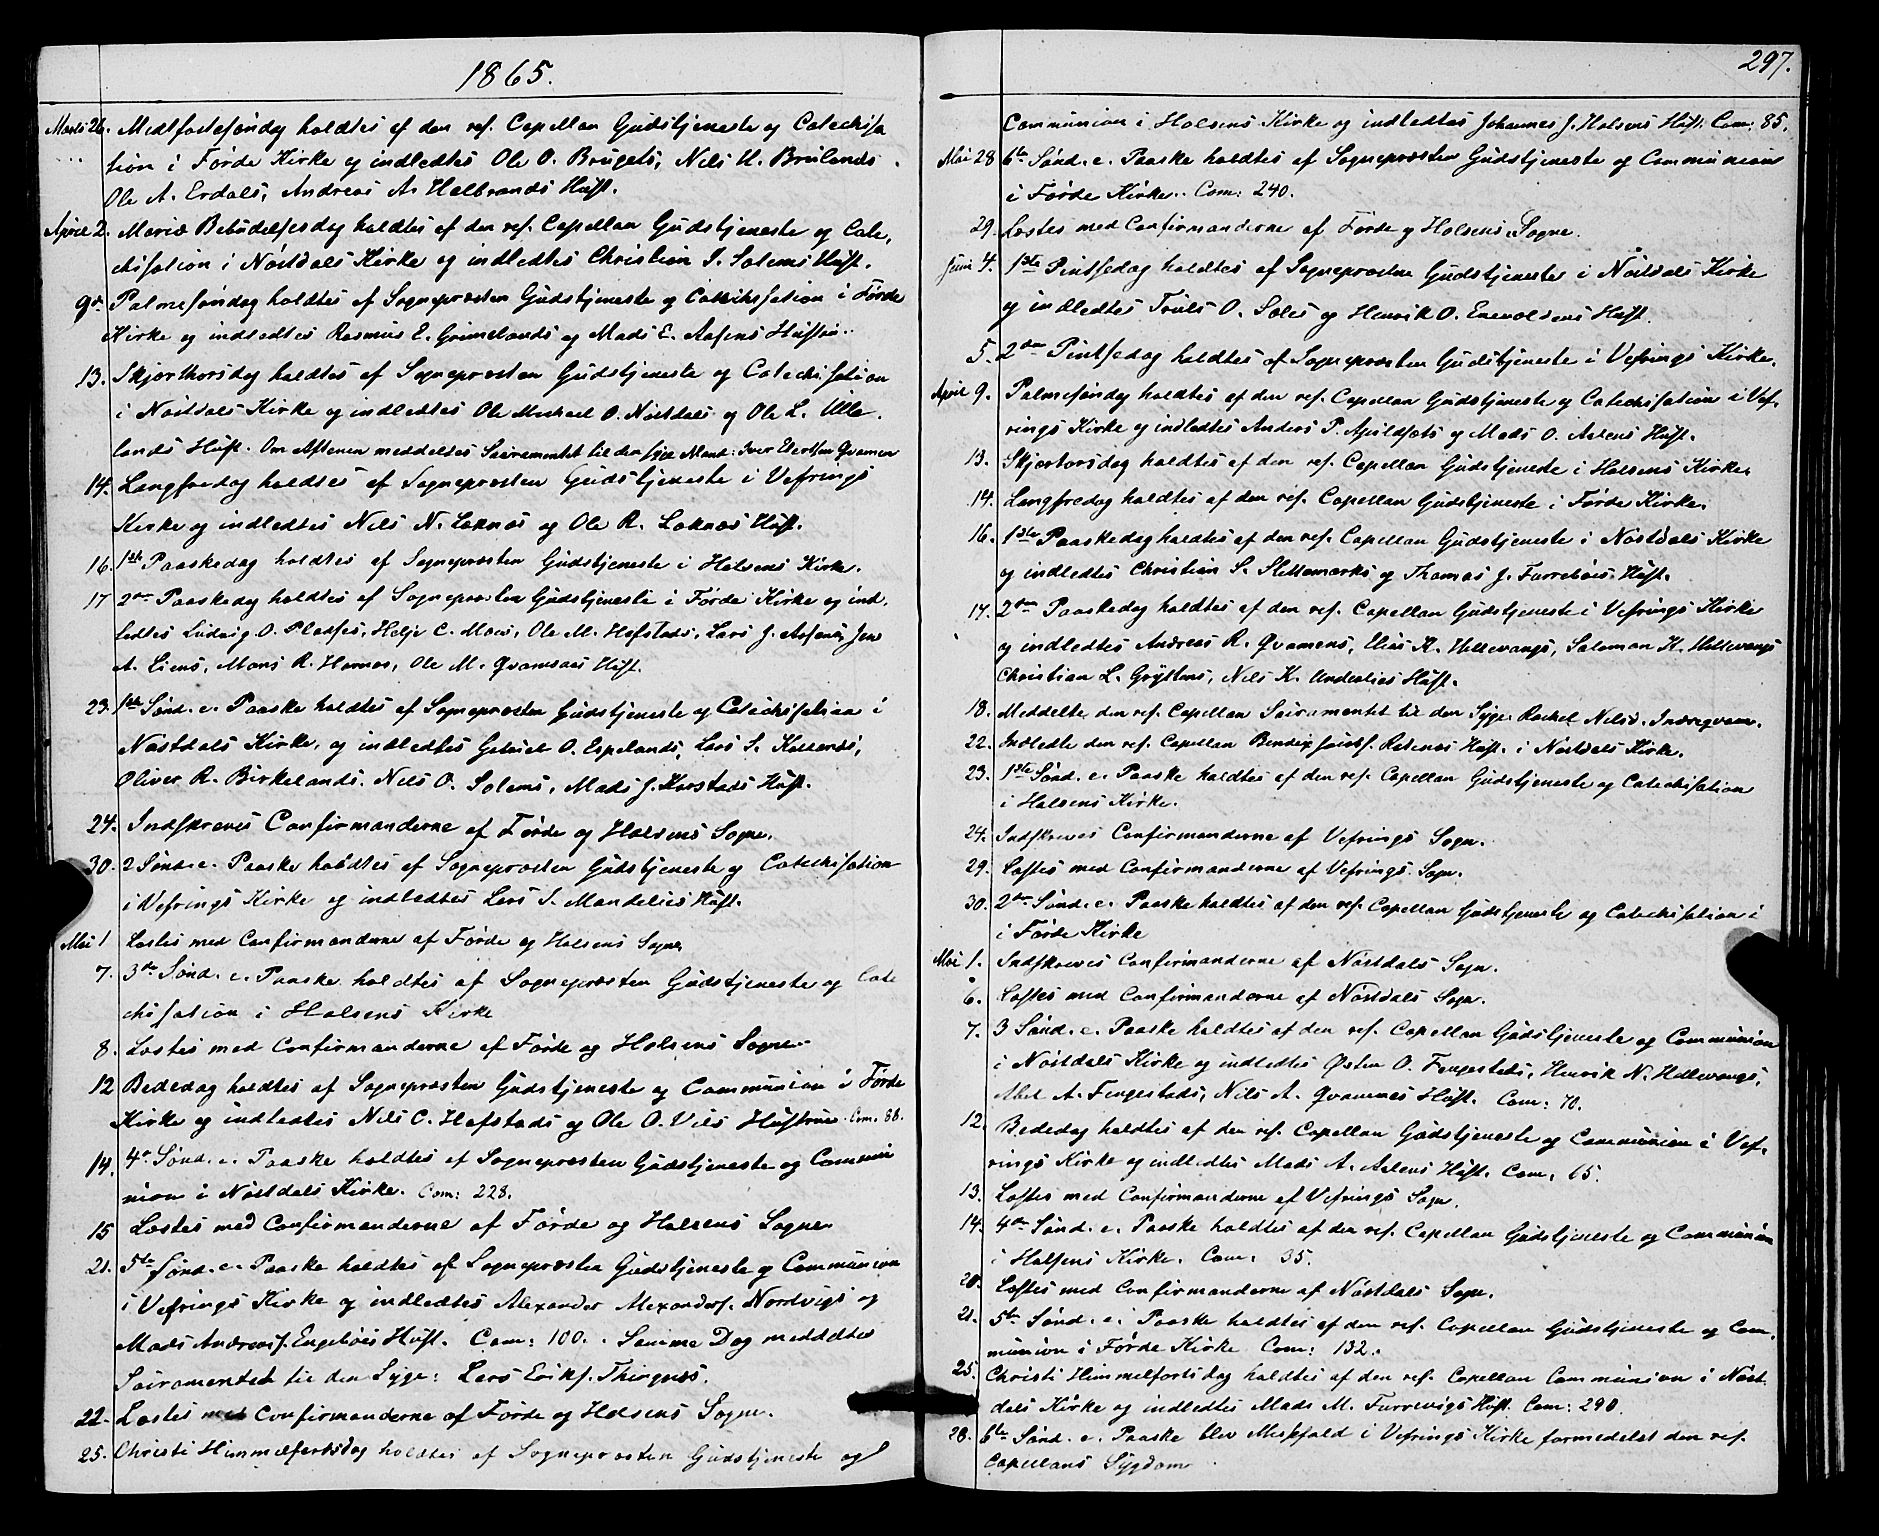 1865.
Marts 26. Midtfastesøndag holdtes af den res. Capellan Gudstjeneste og Catechisa
tion i Førde Kirke og indledtes Ole O. Brugets, Nils H. Brulands
Ole A. Erdals, Andreas A. Halbrands Hust.
April 2. Mariæ Bebudelsesdag holdtes af den res. Capellan Gudstjeneste og Cate,
chisation i Nøstdals Kirke og indledtes Christian S. Solems Hust.
9de Palmesøndag holdtes af Sognepræsten Gudstjeneste og Catechisation i Førde
Kirke og indledtes Rasmus E. Grimelands og Mads E. Aasens Hustru..
13. Skjærthorsdag holdtes af Sognepræsten Gudstjeneste og Catechisation
i Nøstdals Kirke og indledtes Ole Michael O. Nøstdals og Ole L. Ulle,
lands Hust. Om Aftenen meddeltes Sacramentet til den syge Mand: Iver Elertsen Qvamen
14. Langfredag holdtes af Sognepræsten Gudstjeneste i Vefrings
Kirke og indledtes Nils N. Løknæs og Ole R. Løknæs Hust.
16. 1ste Paaskedag holdtes af Sognepræsten Gudstjeneste i Holsens Kirke.
17 2den Paaskedag holdtes af Sognepræsten Gudstjeneste i Førde Kirke og ind,
ledtes Ludvig O. Pladses, Helje C. Moes, Ole M. Hafstads, Lars J. Aasens, Jens
A. Liens, Mons R. Hornæs, Ole M. Qvamsaas Hust.
23. 1ste Sønd. e. Paaske holdtes af Sognepræsten Gudstjeneste og Catechisation i
Nøstdals Kirke, og indledtes Gabriel O. Espelands, Lars S.
Oliver R. Birkelands. Nils O. Solems, Mads J. Horstads Hust.
24. Indskreves Confirmanderne af Førde og Holsens Sogne.
30. 2 Sønd. e. Paaske holdtes af Sognepræsten Gudstjeneste og Catechisation
i Vefrings Kirke og indledtes Lars S. Mandelies Hust.
Mai 1 Læstes med Confirmanderne af Førde og Holsens Sogne
7. 3die Sønd. e. Paaske holdtes af Sognepræsten Gudstjeneste og Cate
chisation i Holsens Kirke
8. Læstes med Confirmanderne af Førde og Holsens Sogne
12 Bededag holdtes af Sognepræsten Gudstjeneste og Communion i Førde
Kirke og indledtes Nils C. Hafstads og Ole O. Vies Hustruer. Com. 88.
14. 4de Sønd. e. Paaske holdtes af Sognepræsten Gudstjeneste og Commu
nion i Nøstdals Kirke. Com: 228.
15 Læstes med Confirmanderne af Førde og Holsens Sogne
21. 5te Sønd. e. Paaske holdtes af Sognepræsten Gudstjeneste og Communion
i Vefrings Kirke og indledtes Alexander Alexanders. Nordvigs og
Mads Andreas. Engebøes Hust. Com: 100. . Samme Dag meddeltes
Sacramentet til den Syge: Lars Eriks. Thingnæs.
22. Læstes med Confirmanderne af Førde og Holsens Sogne.
25. Christi Himmelfartsdag holdtes af Sognepræsten Gudstjeneste og
297.
Communion i Holsens Kirke og indledtes Johannes J. Holsens Hust. Com: 85.
Mai 28 6te Sønd. e. Paaske holdtes af Sognepræsten Gudstjeneste og Communion
i Førde Kirke. Com: 240.
29. Læstes med Confirmanderne af Førde og Holsens Sogne.
Juni 4. 1ste Pintsedag holdtes af Sognepræsten Gudstjeneste i Nøstdals Kirke
og indledtes Truls O. Soles og Henrik O. Enevoldsens Hust.
5. 2den Pintsedag holdtes af Sognepræsten Gudstjeneste i Vefrings Kirke.
April 9. Palmesøndag holdtes af den res. Capellan Gudstjeneste og Catechisation i Vef,
rings Kirke og indledtes Anders P. Apildsæts og Mads O. Aasens Hust.
13. Skjærtorsdag holdtes af den res. Capellan Gudstjeneste i Holsens Kirke.
14. Langfredag holdtes af den res. Capellan Gudstjeneste i Førde Kirke.
16. 1ste Paaskedag holdtes af den res. Capellan Gudstjeneste i Nøstdals Kirke
og indledtes Christian S. Slettemarks og Thomas J. Furrebøes Hust.
17. 2den Paaskedag holdtes af den res. Capellan Gudstjeneste i Vefrings Kirke
og indledtes Andreas R. Qvamens, Elias K. Hellevangs, Salomon K. Hellevangs
Christian L. Gryttens, Nils K. Underlies Hust.
18. Meddelte den res. Capellan Sacramentet til den Syge Rachel Nilsd. Indreqvam.
22. Indledte den res. Capellan Bendix Jacobs. Ratenæs Hust. i Nøstdals Kirke.
23. 1ste Sønd. e. Paaske holdtes af den res. Capellan Gudstjeneste og Catechisation
i Holsens Kirke.
24. Indskreves Confirmanderne af Vefrings Sogn.
29. Læstes med Confirmanderne af Vefrings Sogn.
30. 2den Sønd. e. Paaske holdtes af den res. Capellan Gudstjeneste og Catechisation i
i Førde Kirke
Mai 1. Indskreves Confirmanderne af Nøstdals Sogn.
6. Læstes med Confirmanderne af Nøstdals Sogn.
7. 3 Sønd. e. Paaske holdtes af den res. Capellan Gudstjeneste og Communion
i Nøstdals Kirke og indledtes Østen O. Fengestads, Henrik N. Hellevangs,
Abel A. Fengestads, Nils A. Qvamnes Hust. Com: 70.
12. Bededag holdtes af den res. Capellan Gudstjeneste og Communion i Vef,
rings Kirke og indledtes Mads A. Aasens Hust. Com. 65.
13. Læstes med Confirmanderne af Vefrings Sogn.
14. 4de Sønd. e. Paaske holdtes af den res. Capellan Gudstjeneste og Communion
i Holsens Kirke. Com. 35.
20. Læstes med Confirmanderne af Nøstdals Sogn.
21. 5te Sønd. e. Paaske holdtes af den res. Capellan Gudstjeneste og Com,
munion i Førde Kirke Com: 132.
25. Christi Himmelfartsdag holdtes af den res. Capellan Communion i Nøst
dals Kirke og indledtes Mads M. Furrevigs Hust. Com: 290.
28. 6te Sønd. e. Paaske blev Messefald i Vefrings Kirke formedelst den res.
Capellans Sygdom